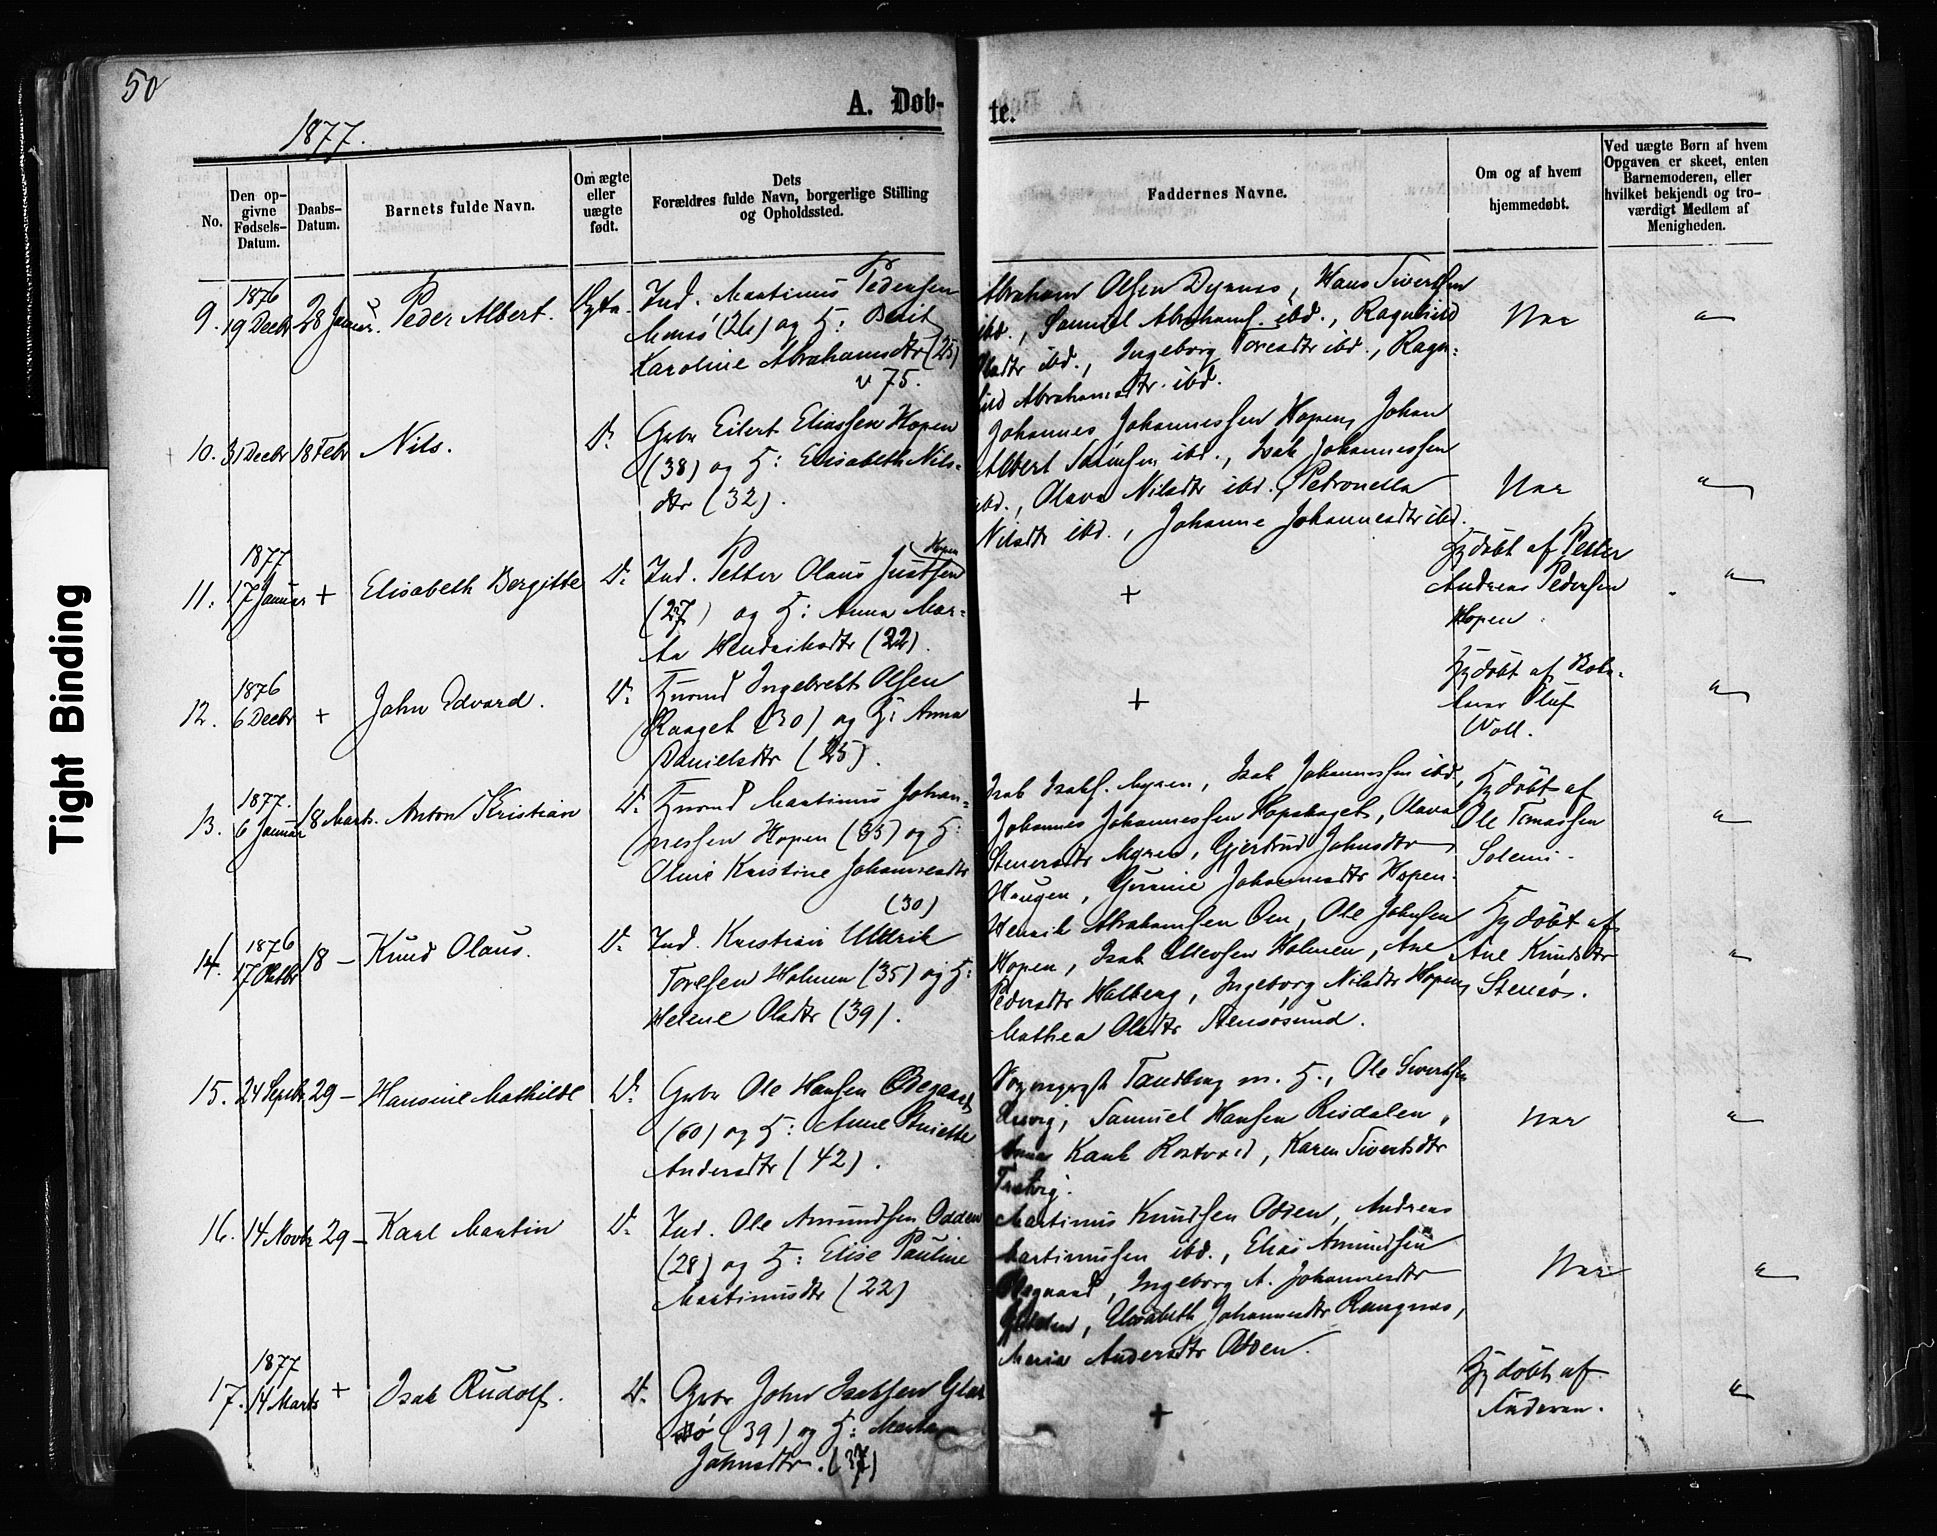 50
A. Døb-
te.
1877.
No.
Den op-
givne
Fødsels-
Datum.
Daabs-
Datum.
Barnets fulde Navn.
Om ægte
eller
uægte
født.
Dets
Forældres fulde Navn, borgerlige Stilling
og Opholdssted.
Faddernes Navne.
Om og af hvem
hjemmedøbt.
Ved uægte Børn af hvem
Opgaven er skeet, enten
Barnemoderen, eller
hvilket bekjendt og tro-
værdigt Medlem af
Menigheden.
9.
1876
19 Decbr
28 Januar.
Peder Albert.
Ind. Martinus Pedersen
(26) og H: Berit
Karoline Abrahamsdtr (25)
v 75.
Abraham Olsen Dyrnes, Hans Sivertsen
ibd., Samuel Abrahams. ibd., Ragnhild
Olsdtr ibd., Ingeborg Toresdtr ibd., Ragn-
hild Abrahamsdtr. ibd.
"
10.
31 Decbr
18 Febr
Nils.
D:
Gbr Eilert Eliassen Hopen
(38) og H: Elisabeth Nils-
dtr (32).
Johannes Johannessen Hopen, Johan
Albert ibd., Isak Johannessen
ibd., Olava Nilsdtr ibd., Petronella
Nilsdtr ibd., Johanne Johannesdtr ibd.
"
11.
1877
17 Januar
+
Elisabeth Bergitte
D:
Hopen
Ind. Petter Olaus Justsen
(27) og H: Anna Mar-
ta Hendriksdtr (22).
+
Hjdøbt af Petter
Andreas Pedersen
Hopen.
"
12.
1876
6 Decbr
+
John Edvard.
D:
Ingebrett Olsen
(30) og H: Anna
Danielsdtr (25).
+
Hjdøbt af
Oluf
Voll.
"
13.
1877.
6 Januar
18 Marts.
Anton Kristian
D:
Martinus Johan-
nessen Hopen (35) og H:
Oline Kristine Johannesdtr
(30)
Isak Isaks. Myren, Isak Johannessen ibd,
Johannes Johannessen Hopshaget, Olava
Myren, Gjertrud Johnsdtr
Haugen, Johannesdtr Hopen.
Hjdøbt af
Ole Tomassen
Solemi.
"
14.
1876
17 Oktbr
18 –
Knud Olaus.
D:
Ind. Kristian Uldrik
Toresen Holmen (35) og H:
Helene Olsdtr (39).
Henrik Abrahamsen Øen, Ole Johnsen
Hopen, Isak Ellevsen Holmen, Ane
Pedersdtr Halberg, Ingeborg Nilsdtr Hopen,
Mathea Olsdtr Stensøsund.
Hjdøbt af
Ane Knudsdtr
Stensøs.
"
15.
24 Septbr
29 –
Hansine Mathilde
D:
Gbr Ole Hansen Ødegaard
(60) og H: Anne
Andersdtr (42).
Tandberg m. H., Ole Sivertsen
Samuel Hansen Risdalen,
Anna Rostvold, Karen Sivertsdtr
"
16.
14 Novbr
29 –
Karl Martin
D:
Ind. Ole Amundsen Odden
(28) og H: Elise Pauline
Martinusdtr (22)
Martinus Knudsen Odden, Andreas
Martinussen ibd., Elias Amundsen
Ingeborg A. Johannesdtr
Elisabeth Johannesdtr Rangnes,
Maria Andersdtr Odden.
"
17.
1877
14 Marts
+
Isak Rudolf.
D:
Gbr John Isaksen
(39) og H: Marta
Johnsdtr. (37)
+
Hjdøbt af
Faderen.
"
Tight Binding